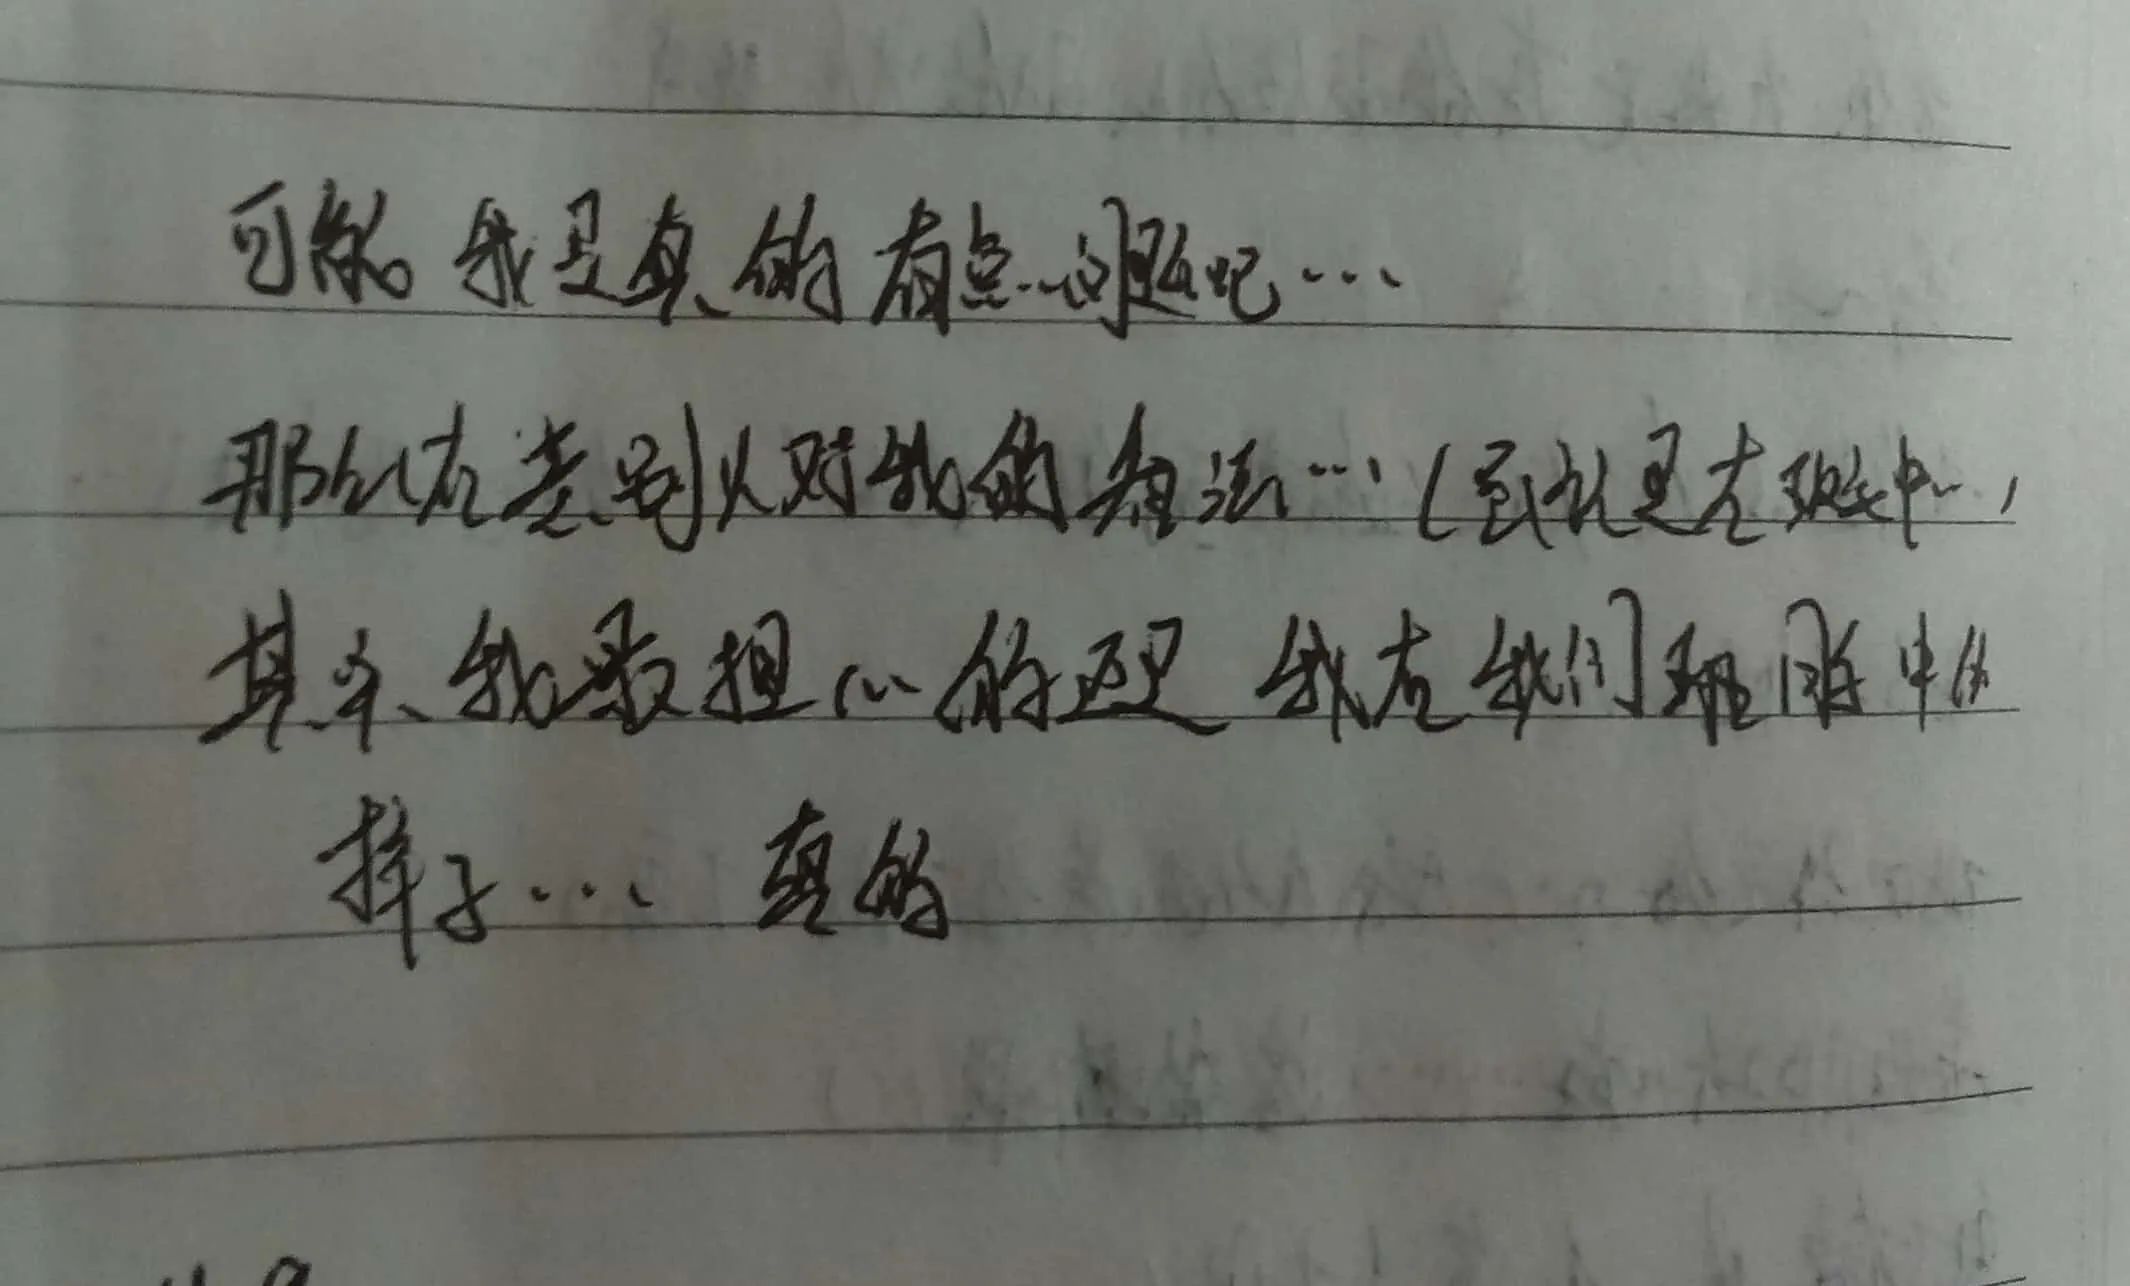 可能我是真的有点问题吧…
那么在意别人对我的看法…(或就是在班中
其实、我最担心的还是 我在我们班同学中的
样子… 真的